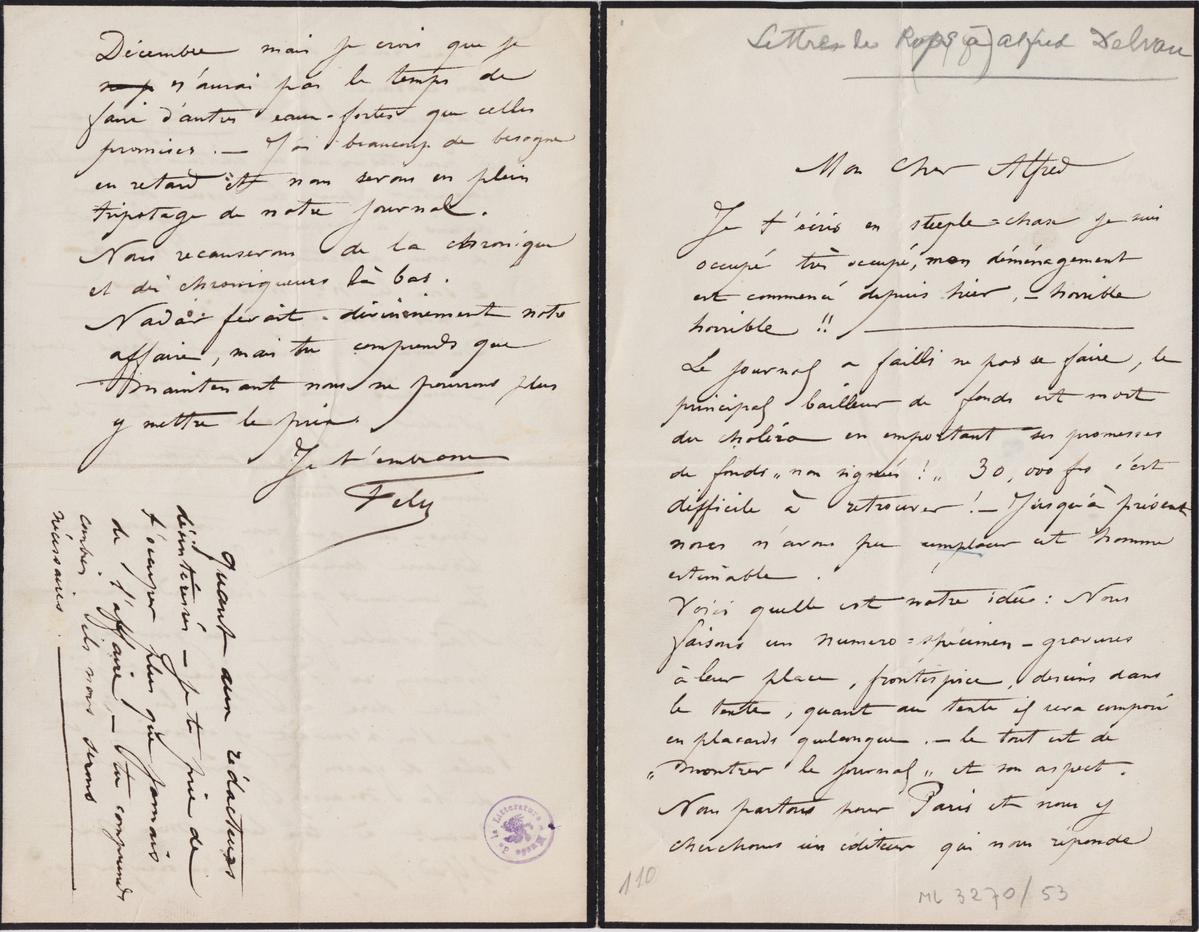 Lettres de Rops (à) Alfred Delvau
Mon Cher Alfred
Je t'écris en steeple=chase je suis
occupé très occupé, mon déménagement
est commencé depuis hier, – horrible
horrible !!
Le journal a failli ne pas se faire, le
principal bailleur de fonds est mort
du choléra en emportant ses promesses
de fonds „ non signées ! „ 30,000 frs c'est
difficile à retrouver ! – Jusqu'à présent
nous n'avons pu remplacer cet homme
estimable.
Voici quelle est notre idée : Nous
faisons un numero=spécimen – gravures
à leur place, frontispice, dessins dans
le texte, quant au texte il sera composé
en placards quelconque. – le tout est de
„ montrer le journal „ et son aspect.
Nous partons pour Paris et nous y
cherchons un éditeur qui nous réponde
110
ML 3270/53
Décembre mais je crois que je
n'aurai pas le temps de
faire d'autres eaux-fortes que celles
promises. – J'ai beaucoup de besogne
en retard et nous serons en plein
tripotage de notre journal.
Nous recauserons de la chronique
et des chroniqueurs là bas.
Nadar ferait divinement notre
affaire, mais tu comprends que
maintenant nous ne pourrons plus
y mettre le prix.
Je t'embrasse
Fély
quant aux rédacteurs
désintéressés – je te prie de
t'occuper plus que jamais
de l'affaire, – tu comprends
combien ils nous seront
nécessaires.
Musée de la Littérature